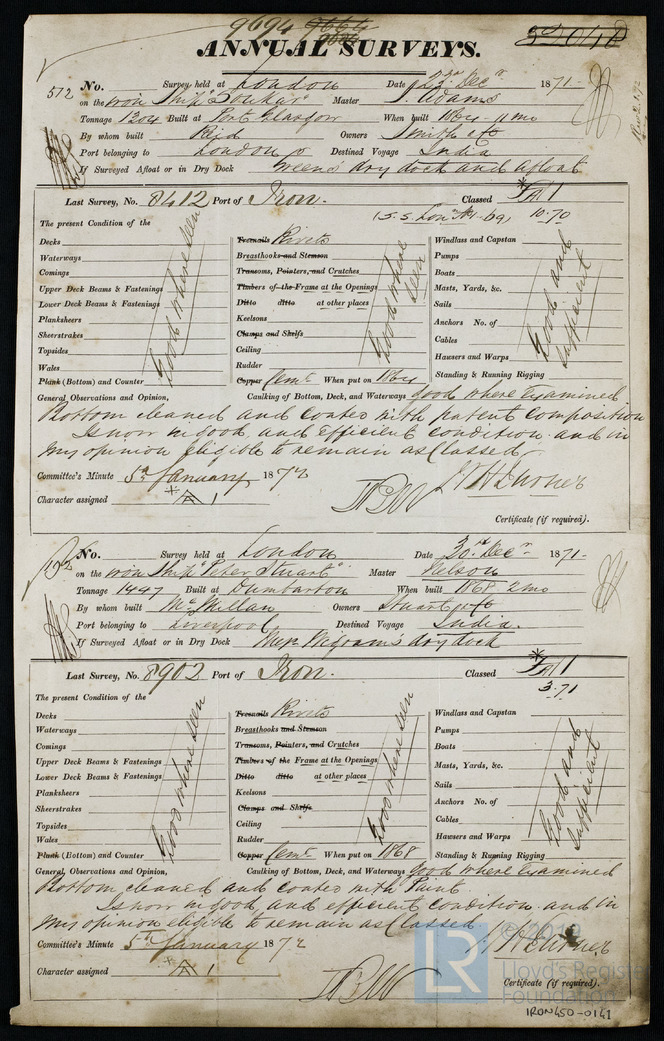 9694
ANNUAL SURVEYS.
512 No. Survey held at London Date 23rd Decr 1871-
on the iron Ship "Soukar" Master J. Adams
Tonnage 1304 Built at Port Glasgow When built 1864 - 11 mo
By whom built Reid Owners Smith & Co
Port belonging to London Destined Voyage India
If Surveyed Afloat or in Dry Dock Green's dry dock and afloat
Last Survey, No. 8412 Port of Iron. Classed A 1
10.70
The present Condition of the
Decks Treenails Rivets Windlass and Capstan
Waterways Breasthooks and Stemson Pumps
Comings Transoms, Pointers, and Crutches Boats
Upper Deck Beams & Fastenings Timbers of the Frame at the Openings Masts, Yards, &c.
Lower Deck Beams & Fastenings Ditto ditto at other places Sails
Planksheers Keelsons Anchors No. of
Sheerstrakes Clamps and Shelfs Cables
Topsides Ceiling Hawsers and Warps
Wales Rudder Standing & Running Rigging
Plank (Bottom) and Counter Copper Cemt When put on 1864
Good where seen
Good where seen
Good and sufficient
General Observations and Opinion, Caulking of Bottom, Deck, and Waterways good where examined
Bottom cleaned and coated with patent composition
Is now in good and efficient condition and in
my opinion eligible to remain as Classed
Committee's Minute 5th January 1872
Character assigned A 1
Certificate (if required).
No. Survey held at London Date 30th Decr 1871-
on the iron Ship "Peter Stuart" Master Nelson
Tonnage 1447 Built at Dumbarton When built 1868 2 mo
By whom built McMillan Owners Stuart & Co
Port belonging to Liverpool Destined Voyage India.
If Surveyed Afloat or in Dry Dock Messrs Wigram's dry dock
Last Survey, No. 8902 Port of Iron. Classed A 1
3.71
The present Condition of the
Decks Treenails Rivets Windlass and Capstan
Waterways Breasthooks and Stemson Pumps
Comings Transoms, Pointers, and Crutches Boats
Upper Deck Beams & Fastenings Timbers of the Frame at the Openings Masts, Yards, &c.
Lower Deck Beams & Fastenings Ditto ditto at other places Sails
Planksheers Keelsons Anchors No. of
Sheerstrakes Clamps and Shelfs Cables
Topsides Ceiling Hawsers and Warps
Wales Rudder Standing & Running Rigging
Plank (Bottom) and Counter Copper Cemt When put on 1868
Good where seen
Good where seen
Good and sufficient
General Observations and Opinion, Caulking of Bottom, Deck, and Waterways good where examined
Bottom cleaned and coated with Paint
Is now in good and efficient condition and in
my opinion eligible to remain as Classed
Committee's Minute 5th January 1872
Character assigned A 1
Certificate (if required).
© 2019
LR Lloyd's Register
Foundation
IRON450-0141